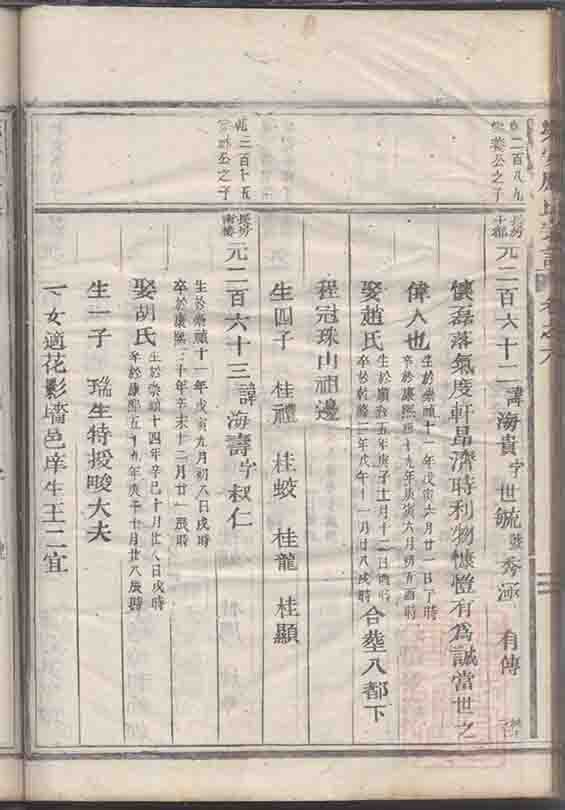 二百八九
公之子
元二百六十二 諱海貴字世毓號秀涵 有傳
懷磊落氣度軒昂濟時利物慷慨有為誠當世之
偉人也 生於崇禎十一年戊寅六月廿一日丁時
卒於康熙四十九年庚寅六月初五酉時
娶趙氏 生於順治五年庚子十一月十一日酉時
卒於乾隆二年戊午十一月廿八戌時 合塟八都下
程冠珠山祖邊
生四子 桂禮 桂蛟 桂龍 桂顯
二百十五
公之子
元二百六十三 諱海壽字叔仁
生於崇禎十一年戊寅九月初八日戌時
卒於康熙三十年辛未十二月廿一辰時
娶胡氏 生於崇禎十四年辛巳十月廿八日戌時
卒於康熙五十九年庚子十月廿八辰時
生一子 瑞生特授畯大夫
一女適花影墻邑庠生王二宜